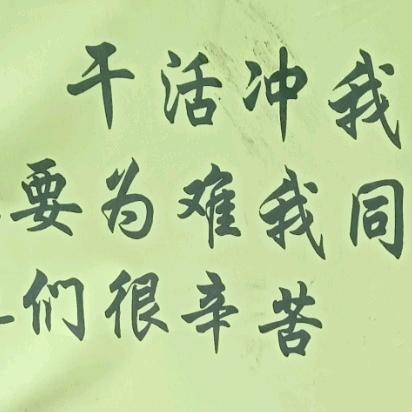 干活冲我
要为难我同
们很辛苦